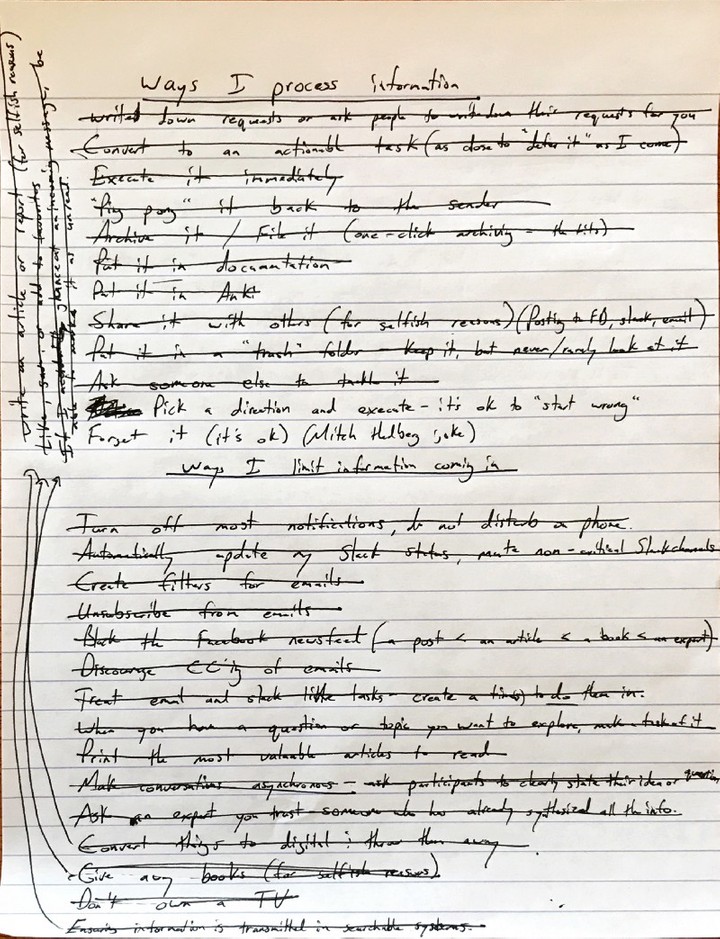 Ways I process information
Writed down requests or ask people to write down their requests for you
Convert to an actionable task (as close to "defer it" as I come)
Execute it immediately
"Ping pong" it back to the sender
Archive it / File it (one-click archiving - the bits)
Put it in documentation
Put it in Anki
Share it with others (for selfish reasons) (Posting to FB, slack, email)
Put it in a "trash" folder - keep it, but never/rarely look at it
Ask someone else to tackle it
Pick a direction and execute - it's ok to "start wrong"
Forget it (it's ok) (Mitch Hedberg joke)
Write an article or report (for selfish reasons)
Like, save or add to favorites
If I glance at an incoming message, be
able to mark it as unread.
Ways I limit information coming in
Turn off most notifications, do not disturb on phone.
Automatically update my Slack status, mute non-critical Slack channels
Create filters for emails
Unsubscribe from emails
Block the Facebook newsfeed (a post < an article < a book < an expert)
Discourage CC'ing of emails
Treat email and slack like tasks - create a time(s) to do them in.
When you have a question or topic you want to explore, make a task of it
Print the most valuable articles to read
Make conversations asynchronous - ask participants to clearly state their idea or question
Ask an expert you trust someone who has already synthesized all the info.
Convert things to digital & throw them away
Give away books (for selfish reasons).
Don't own a TV
Ensuring information is transmitted in searchable systems.